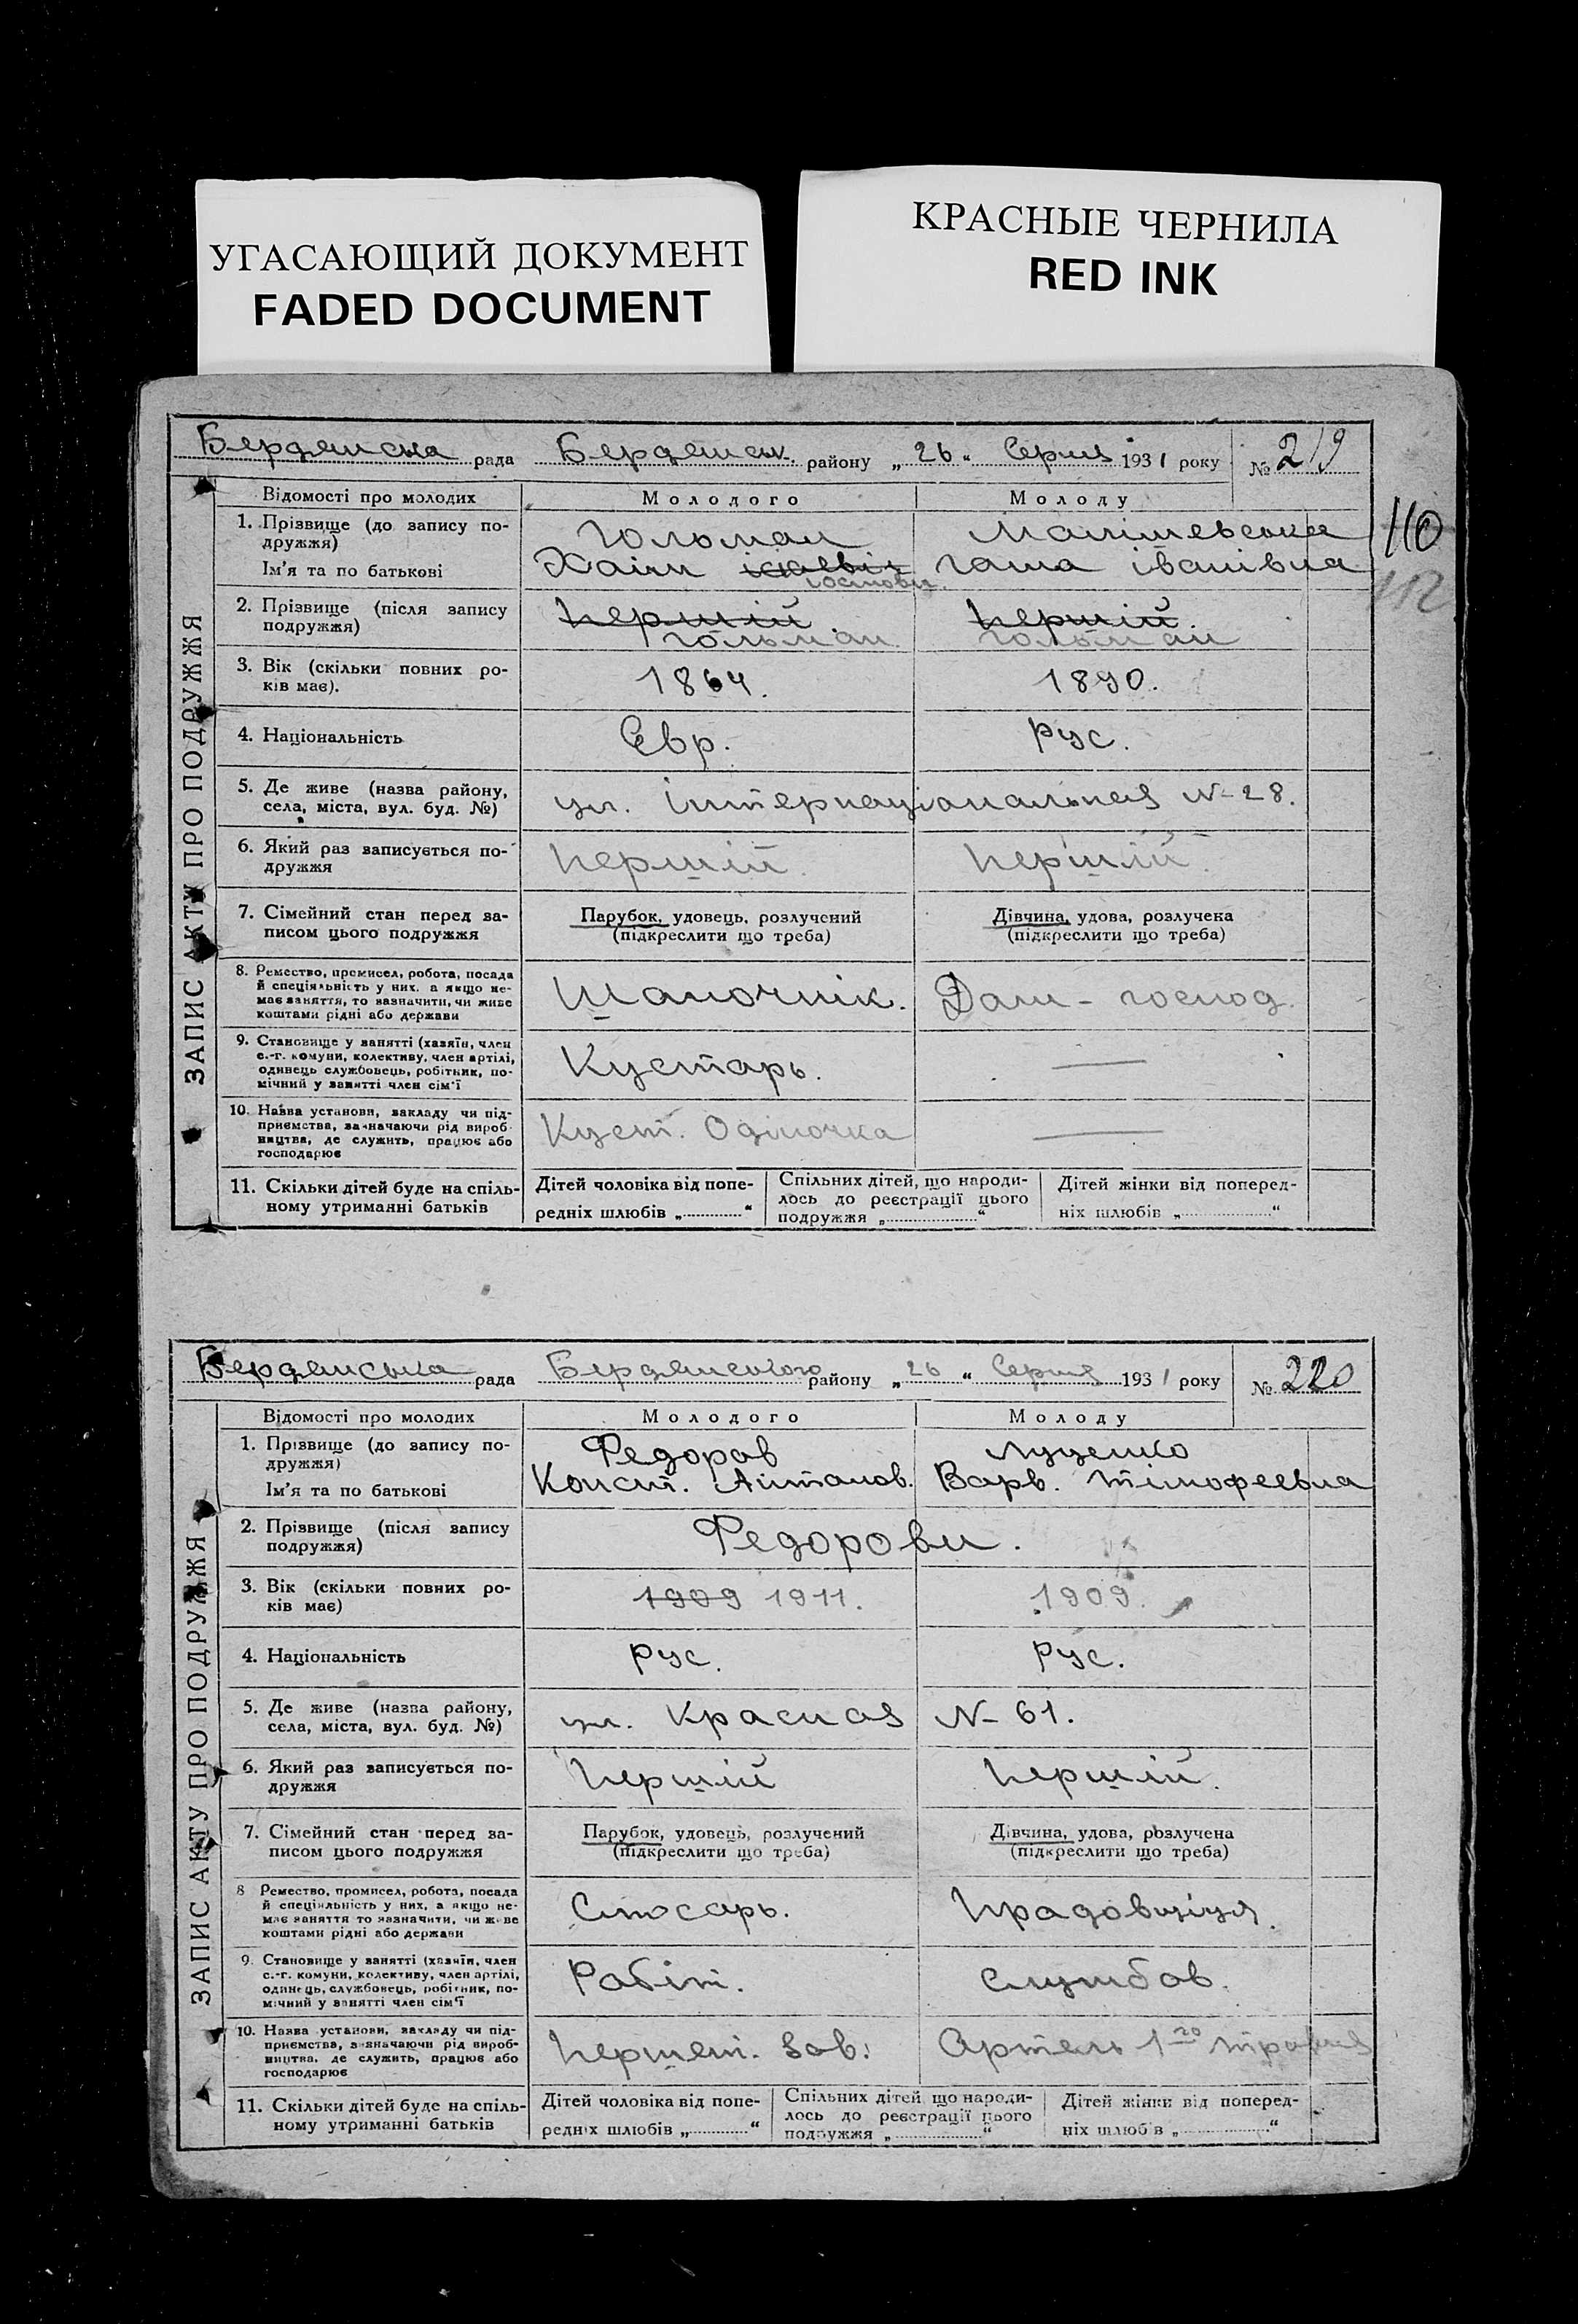 УГАСАЮЩИЙ ДОКУМЕНТ
FADED DOCUMENT
КРАСНЫЕ ЧЕРНИЛА
RED INK
Бердянска рада Бердянськ. району „26“ Серпня 1931 року № 219
110
112
ЗАПИС АКТУ ПРО ПОДРУЖЖЯ
Відомості про молодих Молодого Молоду
1. Прізвище (до запису по-
дружжя) Гольман Малішевська
Ім'я та по батькові Хаім Гаша Іванівна
2. Прізвище (після запису
подружжя) першій першій
Гольман Гольман
3. Вік (скільки повних ро-
ків має). 1864. 1890.
4. Національність Євр. Рус.
5. Де живе (назва району,
села, міста, вул. буд. №) ул. Інтернаціональная N-28.
6. Який раз записується по-
дружжя першій першій
7. Сімейний стан перед за-
писом цього подружжя
Парубок, удовець, розлучений
(підкреслити що треба)
Дівчина, удова, розлучена
(підкреслити що треба)
8. Ремество, промисел, робота, посада
й спеціяльність у них, а якщо не-
має заняття, то зазначити, чи живе
коштами рідні або держави
Шапочнік. Дом-господ.
9. Становище у занятті (хазяїн, член
с.-г. комуни, колективу, член артілі,
одинець службовець, робітник, по-
мічний у занятті член сім'ї
Кустарь. —
10. Назва установи, закладу чи під-
приємства, зазначаючи рід вироб-
ництва, де служить, працює або
господарює
Куст. Одіночка —
11. Скільки дітей буде на спіль-
ному утриманні батьків
Дітей чоловіка від попе-
редніх шлюбів „............“
Спільних дітей, що народи-
лось до реєстрації цього
подружжя „............“
Дітей жінки від поперед-
ніх шлюбів „............“
Бердянська рада Бердянського району „26“ Серпня 1931 року № 220
ЗАПИС АКТУ ПРО ПОДРУЖЖЯ
Відомості про молодих Молодого Молоду
1. Прізвище (до запису по-
дружжя) Федоров Луценко
Ім'я та по батькові Конст. Антонов. Варв. Тімофеевна
2. Прізвище (після запису
подружжя) Федорови.
3. Вік (скільки повних ро-
ків має) 1909 1911. 1909.
4. Національність Рус. Рус.
5. Де живе (назва району,
села, міста, вул. буд. №) ул. Красная N-61.
6. Який раз записується по-
дружжя першій першій.
7. Сімейний стан перед за-
писом цього подружжя
Парубок, удовець, розлучений
(підкреслити що треба)
Дівчина, удова, розлучена
(підкреслити що треба)
8 Ремество, промисел, робота, посада
й спеціяльність у них, а якщо не-
має заняття то зазначити, чи живе
коштами рідні або держави
Слюсарь.
9. Становище у занятті (хазяїн, член
с.-г. комуни, колективу, член артілі,
одинець, службовець, робітник, по-
мічний у занятті член сім'ї
Робіт. службов.
10. Назва установи, закладу чи під-
приємства, зазначаючи рід вироб-
ництва, де служить, працює або
господарює
Першет. Зав. Артель 1го травня
11. Скільки дітей буде на спіль-
ному утриманні батьків
Дітей чоловіка від попе-
редніх шлюбів „............“
Спільних дітей що народи-
лось до реєстрації цього
подружжя „............“
Дітей жінки від поперед-
ніх шлюбів „............“